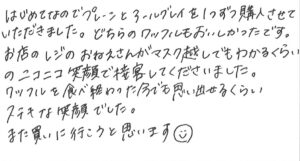 はじめてなのでプレーンとアールグレイを1つずつ購入させて
いただきました。どちらのワッフルもおいしかったです。
お店のレジのおねえさんがマスク越しでもわかるくらい
のニコニコ笑顔で接客してくださいました。
ワッフルを食べ終わった今でも思い出せるくらい
ステキな笑顔でした。
また買いに行こうと思います